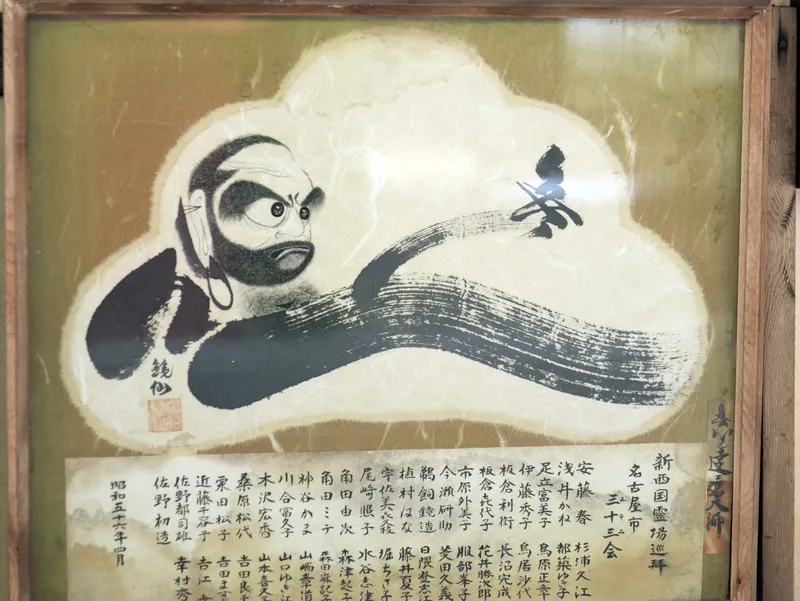 新西国霊場巡拝
名古屋市
三十三会
安藤 春 杉浦久江
浅井かね 都築ゆき子
足立富美子 鳥原正章
伊藤秀子 鳥居沙代
板倉利衛 長沼完成
板倉㐂代子 花井勝次郎
市原外美子 服部峯子
今瀬研助 美田久義
鵜飼鏡造 日隈登志江
植村はな 藤井夏子
堀ちさ子
尾崎照子 水谷志津
角田由次 森津起子
角田ミテ 森田麻記子
神谷かま 山崎章道
川合富久子 山口ゆき江
木沢宏香 山本喜久
桑原松代 吉田良
栗田松子 吉田ます
近藤千容子 吉江
佐野都司雄 幸村秀
佐野初造
昭和五十六年四月
鏡仙